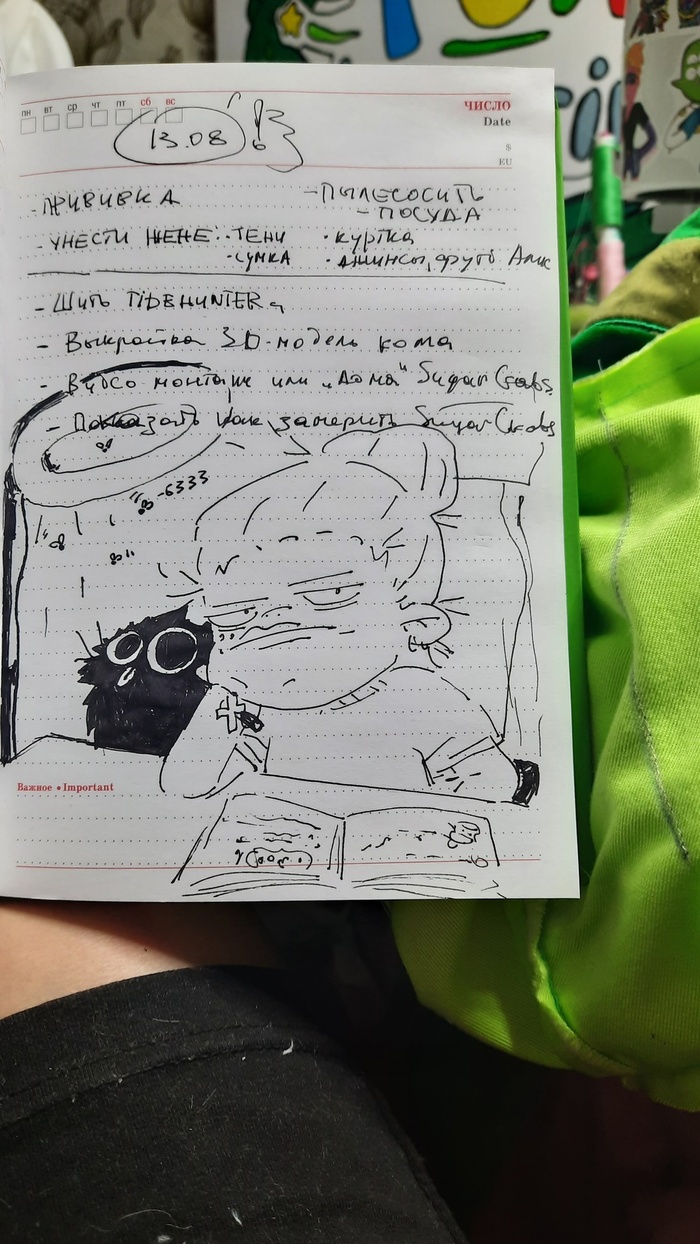 пн вт ср чт пт сб вс
ЧИСЛО
Date
13.08 !
$
EU
- ПРИВИВКА
- ПЫЛЕСОСИТЬ
- ПОСУДА
- УНЕСТИ ЖЕНЕ: · ТЕНИ · КУРТКА
· СУМКА · ДЖИНСЫ, фуго Алис
- Шить TIDEHUNTERа
- Выкройка 3D-модель кома
- Видео монтаж или „Дома" Sugar Crabs
- Показать как замерить Sugar Crabs
-6333
Важное • Important